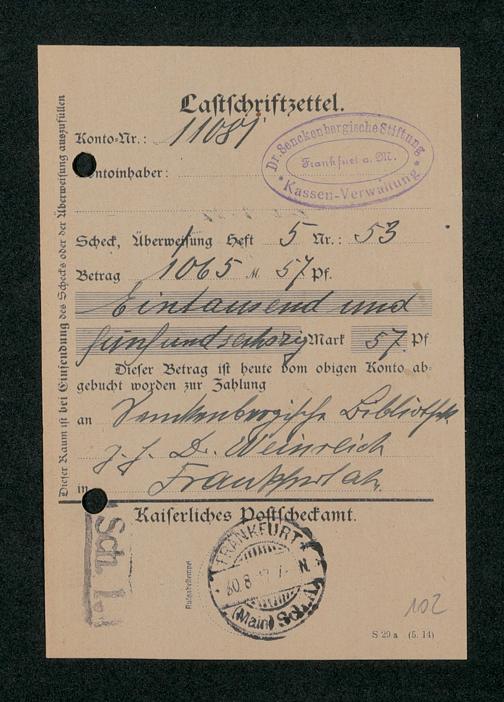 Lastschriftzettel.
Konto-Nr.: 11081
Kontoinhaber:
Dr. Senckenbergische Stiftung
Frankfurt a. M.
Kassen-Verwaltung
Scheck, Überweisung Heft 5 Nr.: 53
Betrag 1065 M 57 Pf.
Eintausend und
fünfundsechzig Mark 57 Pf
Dieser Betrag ist heute vom obigen Konto ab-
gebucht worden zur Zahlung
an Senckenbergische Bibliothek
z. H. Dr. Weinreich
in Frankfurt a/M.
Dieser Raum ist bei Einsendung des Schecks oder der Überweisung auszufüllen
Kaiserliches Postscheckamt.
Sch. I.
FRANKFURT
30.8. N
(Main)
102
S 29 a (5. 14)